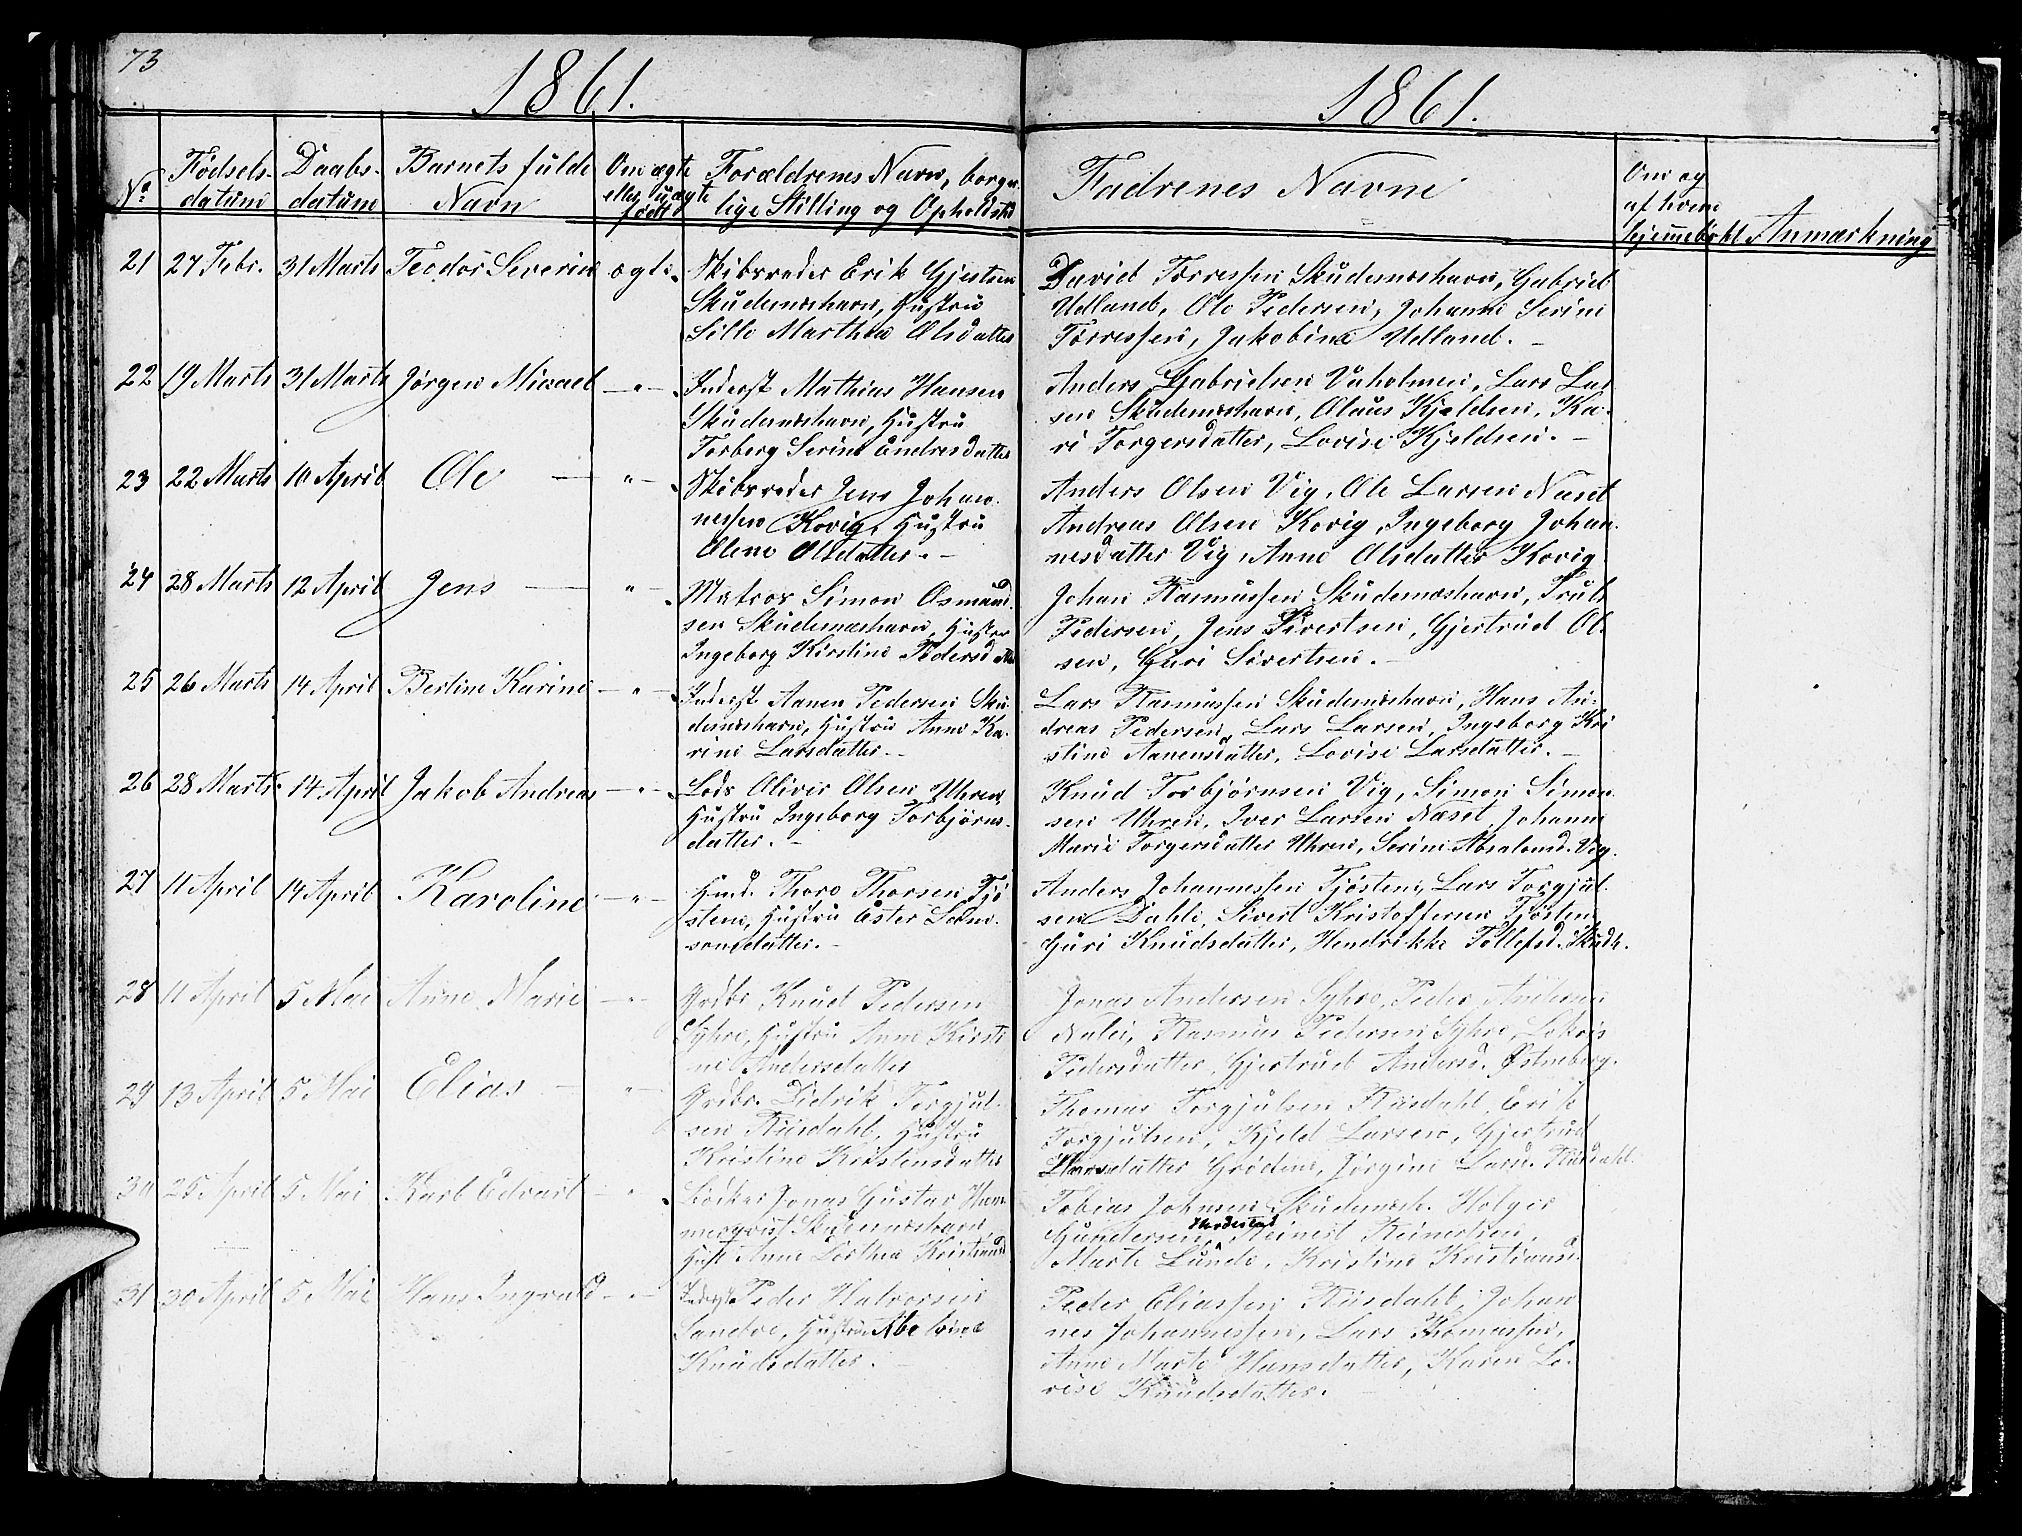 73
1861.
1861.
No Fødsels- datum Daabs- datum Barnets fulde Navn Om ægte eller uægte født Forældrenes Navn, borger- lige Stilling og Opholdsted
Fadrenes Navne Om og af hvem hjemmedøbt Anmærkning
21 27 Febr. 31 Marts Teodor Severin ægte Skibsreder Erik Gjertsen
Skudesnæshavn, Hustru
Sille Marthea Olsdatter
David Torressen Skudesnæshavn, Gabriel
Udland, Ole Pedersen, Johanne Serine
Torressen, Jakobine Udland. -
22 19 Marts 31 Marts Jørgen Micael - " - Inderst Mathias Hansen
Skudesnæshavn, Hustru
Torberg Serine Endresdatter
Anders Gabrielsen Vaholmen, Lars Lar-
sen Skudesnæshavn, Olaus Kjeldsen, Ka-
ri Torgersdatter, Lovise Kjeldsen. -
23 22 Marts 10 April Ole - " - Skibsreder Jens Johan-
nessen Hovig, Hustru
Olene Olsdatter. -
Anders Olsen Vig, Ole Larsen Næset
Andreas Olsen Hovig, Ingeborg Johan-
nesdatter Vig, Anne Olsdatter Hovig
24 28 Marts 12 April Jens - " - Matros Simon Osmund-
sen Skudesnæshavn, Hustru
Ingeborg Kirstine Pedersdatter
Johan Rasmussen Skudesnæshavn, Truls
Pedersen, Jens Sivertsen, Gjertrud Ol-
sen, Guri Sivertsen. -
25 26 Marts 14 April Bertine Karine - " - Inderst Aanen Pedersen Sku-
desnæshavn, Hustru Anne Ka-
rine Larsdatter. -
Lars Rasmussen Skudesnæshavn, Hans An-
dreas Pedersen, Lars Larsen, Ingeborg Kri
stine Aanensdatter, Lovise Larsdatter. -
26 28 Marts 14 April Jakob Andreas - " - Lods Oliver Olsen Uhren,
Hustru Ingeborg Torbjørns-
datter. -
Knud Torbjørnsen Vig, Simon Simon-
sen Uhren, Iver Larsen Næset, Johanne
Marie Torgersdatter Uhren, Serine Absalonsd. Vig.
27 11 April 14 April Karoline - " - Huusm. Thore Thorsen Tjø
sten, Hustru Ester Salmi-
sonsdatter. -
Anders Johannessen Tjøsten, Lars Torgjul-
sen Dahle, Sivert Kristoffersen Tjøsten,
Guri Knudsdatter, Hendrikke Tollefsd. Skudh.
28 11 April 5 Mai Anne Marie - " - Grdbr. Knud Pedersen
Syhre, Hustru Anne Kirsti
ne Andersdatter
Jonas Andersen Syhre, Peder Andersen
Nalei, Rasmus Pedersen Syhre,
Pedersdatter, Gjertrud Andersd. Østneberg.
29 13 April 5 Mai Elias - " - Grdbr. Didrik Torgjul-
sen Risdahl, Hustru
Kristine Kristensdatter
Thomas Torgjulsen Risdahl, Erik
Torgjulsen, Kjeld Larsen, Gjertrud
Larsdatter Grødem, Jørgine Larsd. Risdahl.
30 25 April 5 Mai Karl Edvart - " - Bødker Jonas Gustav Ham-
merqvist Skudesnæshavn,
Hust. Anne Dorthea Kristiansd.
Tobias Johnsen Skudesnæsh. Holger
Gundersen, Reinert Reinertsen,
Marte Lunde, Kristine Kristiansd.
31 30 April 5 Mai Hans Ingvald - " - Inderst Peder Halvorsen
Sandve, Hustru Abeline
Knudsdatter. -
Peder Eliassen Risdahl, Johan
nes Johannessen, Lars Thomassen,
Anne Marte Hansdatter, Karen Lo-
vise Knudsdatter. -